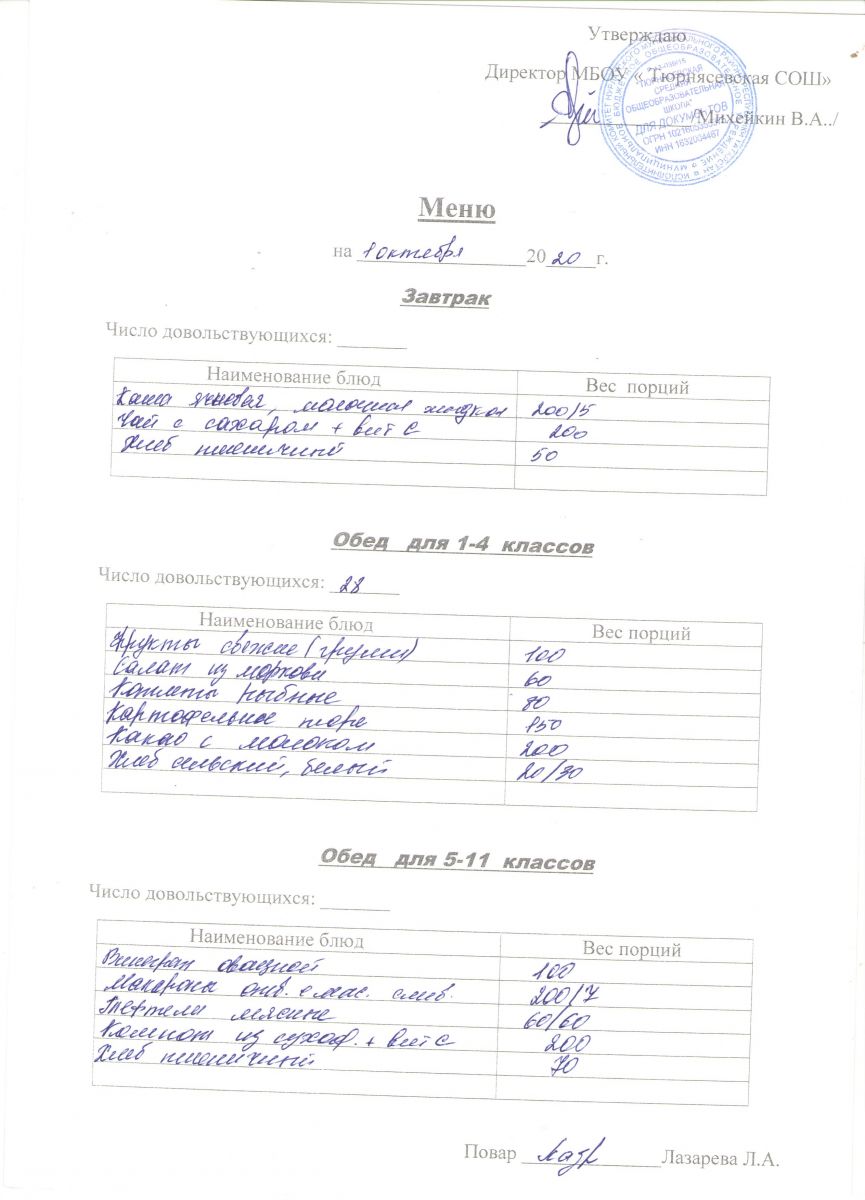 Утверждаю
Директор МБОУ « Тюрнясевская СОШ»
/Михейкин В.А../
ДЛЯ ДОКУМЕНТОВ
ИНН 1632004487
Меню
на 1 октября 2020 г.
Завтрак
Число довольствующихся:
Наименование блюд Вес порций
Каша ячневая, молочная жидкая 200/5
Чай с сахаром + вит С 200
Хлеб пшеничный 50
Обед для 1-4 классов
Число довольствующихся: 28
Наименование блюд Вес порций
Фрукты свежие (груши) 100
Салат из моркови 60
Котлеты рыбные 80
Картофельное пюре 150
Какао с молоком 200
Хлеб сельский, белый 20/30
Обед для 5-11 классов
Число довольствующихся:
Наименование блюд Вес порций
Винегрет овощной 100
Макароны отв. с мас. слив. 200/7
Тефтели мясные 60/60
Компот из сухоф. + вит С 200
Хлеб пшеничный 70
Повар Лазарева Л.А.